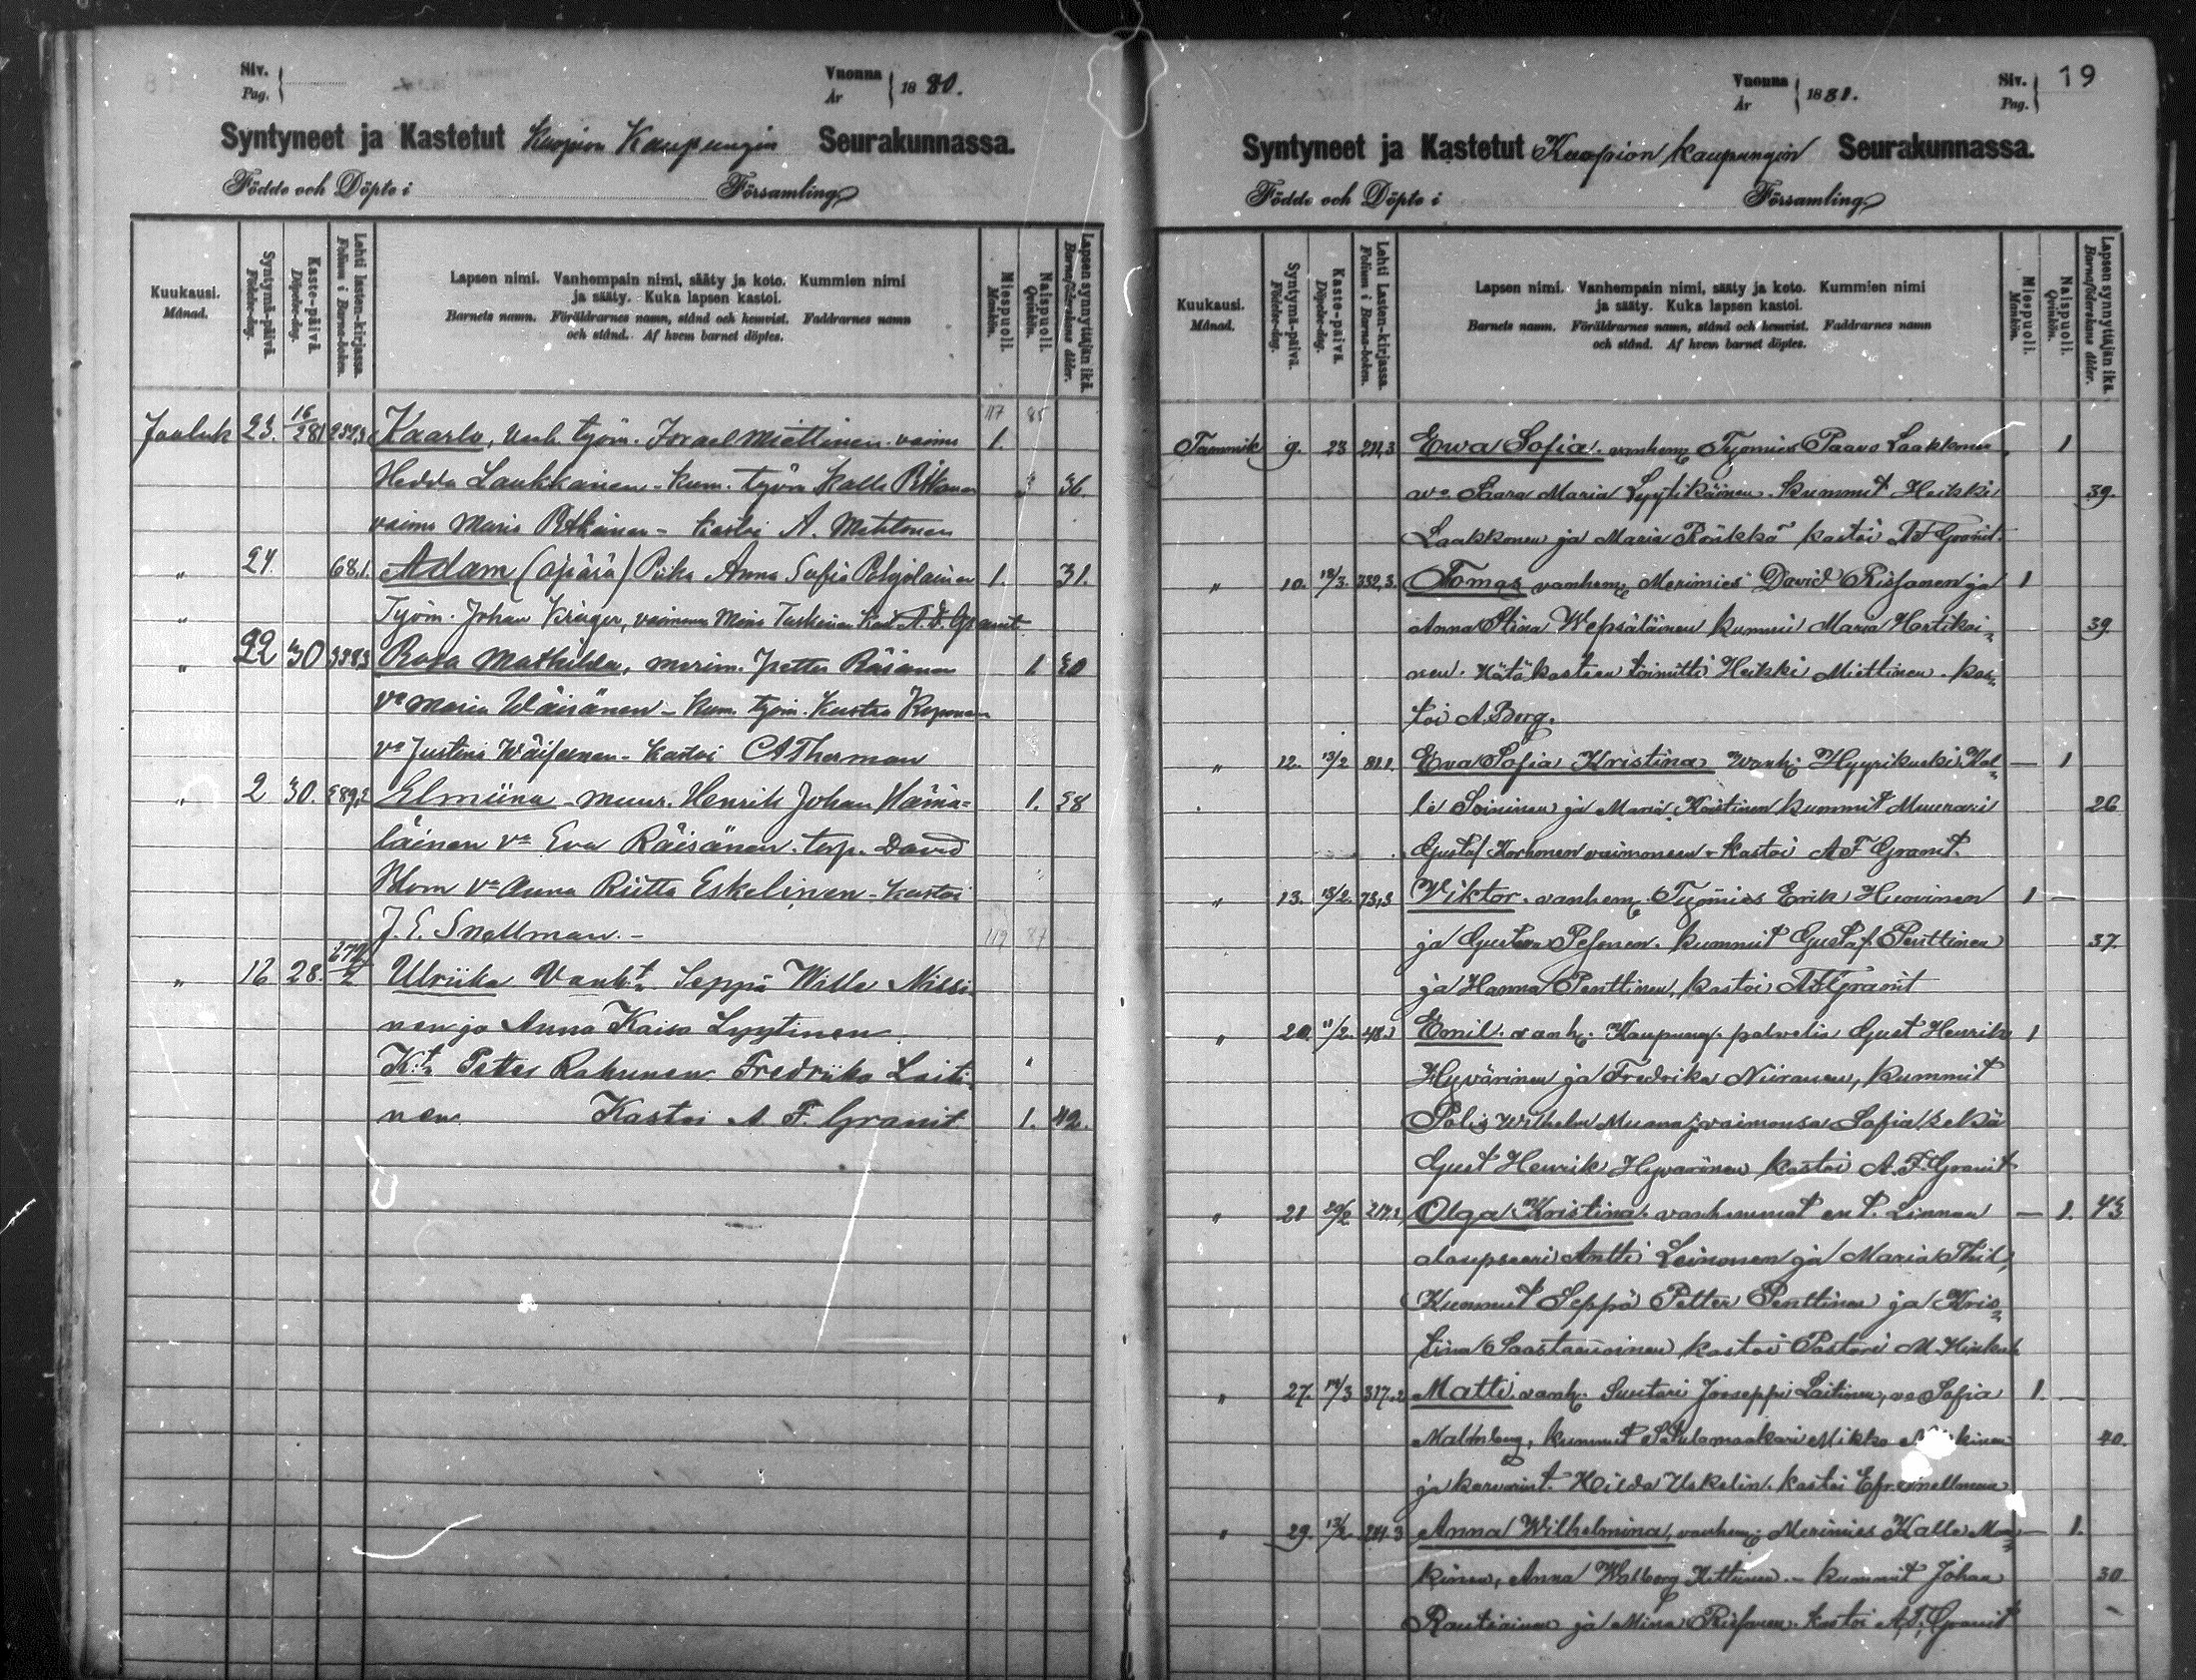 Siv.
Pag.
Vuonna
År
1880.
Syntyneet ja Kastetut Kuopion Kaupungin Seurakunnassa.
Födde och Döpte i Församling
Kuukausi.
Månad.
Syntymä-päivä.
Födelse-dag.
Kaste-päivä.
Döpelse-dag.
Lehti lasten-kirjassa.
Folium i Barna-boken.
Lapsen nimi. Vanhempain nimi, sääty ja koto. Kummien nimi
ja sääty. Kuka lapsen kastoi.
Barnets namn. Föräldrarnes namn, stånd och hemvist. Faddrarnes namn
och stånd. Af hvem barnet döptes.
Miespuoli.
Mankön.
Naispuoli.
Qvinkön.
Lapsen synnyttäjän ikä.
Barnaföderskans ålder.
117 85
Jouluk 23. 16/281 Kaarlo, työm. Israel Miettinen vaimo 1.
Hedda Laukkainen - Kum. työm Kalle Pitkänen 36
vaimo Maria Pitkänen - Kastoi A. Mehtonen
" 24. 68,1. Adam (äpärä) Piika Anna Sofia Pohjolainen 1. 31.
" Työm. Johan Krüger, vaimonsa Mina Taskinen Kast A. F. Granit
" 22 30 Rosa Mathilda, merim. Petter Räsänen 1 30
Vo Maria Wäisänen - Kum. työm. Kustaa Koponen
Vo Justina Wäisänen - Kastoi C A Therman
" 2 30. 289,2 Elmiina - muur. Henrik Johan Hämä=
läinen Vo Eva Räisänen. torp. David 1. 28
Blom Vo Anna Riitta Eskelinen - Kastoi
J. E. Snellman. - 119 87
" 16 28. Ulriika Vanht. Seppä Wille Nissi=
nen ja Anna Kaisa Lyytinen
Kt. Petter Rahunen Fredriika Laiti=
nen. Kastoi A. F. Granit 1. 42.
Vuonna
År
1881.
Siv.
Pag.
19
Syntyneet ja Kastetut Kuopion kaupungin Seurakunnassa.
Födde och Döpte i Församling
Kuukausi.
Månad.
Syntymä-päivä.
Födelse-dag.
Kaste-päivä.
Döpelse-dag.
Lehti Lasten-kirjassa.
Folium i Barna-boken.
Lapsen nimi. Vanhempain nimi, sääty ja koto. Kummien nimi
ja sääty. Kuka lapsen kastoi.
Barnets namn. Föräldrarnes namn, stånd och hemvist. Faddrarnes namn
och stånd. Af hvem barnet döptes.
Miespuoli.
Mankön.
Naispuoli.
Qvinkön.
Lapsen synnyttäjän ikä.
Barnaföderskans ålder.
Tammik 9. 23 Ewa Sofia. vanhem Työmies Paavo Laakkonen 1
vo Saara Maria Lyytikäinen. kummit Heikki 39.
Laakkonen ja Maria Rönkkö kastoi A F Granit.
" 10. 13/3. 332,3. Tomas vanhem Merimies David Rissanen ja 1
Anna Stina Wepsäläinen kummi Maria Hertikai= 39
nen. Hätäkasteen toimitti Heikki Miettinen. kas=
toi A. Berg.
" 12. 13/2 81.1. Eva Sofia Kristina vanh. Hyyrikuski Kal= — 1
le Soininen ja Maria Kostinen kummit Muurari 26
Gustaf Korhonen vaimoneen. kastoi A F Granit.
" 13. 13/2. 73,3 Wiktor. vanhem. Työmies Erik Huovinen 1 —
ja Gustava Pesonen. kummit Gustaf Penttinen 37.
ja Hanna Penttinen. kastoi A F Granit
" 20. 11/2. Emil. vanh. Kaupung. palvelia Gust Henrik 1
Hyvärinen ja Fredrika Niiranen, kummit
Polis Wilhelm vaimonsa Sofia sekä
Gust Henrik Hyvärinen kastoi A. F. Granit
" 21 20/2 217.2 Olga Kristina. vanhemmat ent. Linnan — 1. 43
alaupseeri Antti Leinonen ja Maria Thil,
Kummit Seppä Petter Penttinen ja Kris=
tina Saastamoinen kastoi Pastori M.
" 27. 317.2 Matti. vanh. Suutari Jooseppi Laitinen, vo Sofia 1. —
Malmberg, kummit Satulamaakari Mikko 40.
ja Hilda Uskelin. kastoi Efr. Snellman
" 29. 13/2 Anna Wilhelmina, vanhem. Merimies Kalle — 1.
kinen, Anna Walborg Kettunen. - kummit Johan 30
Rautiainen ja Mina Rissanen. kastoi A. F. Granit